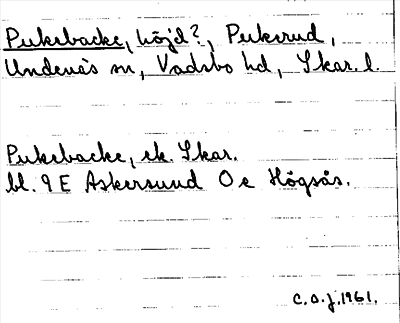 Pukebacke, höjd?, Pukerud,
Undenäs sn, Vadsbo hd, Skar. l.
Pukebacke, ek. Skar.
bl. 9 E Askersund O e Högsås.
C.O.J. 1961.